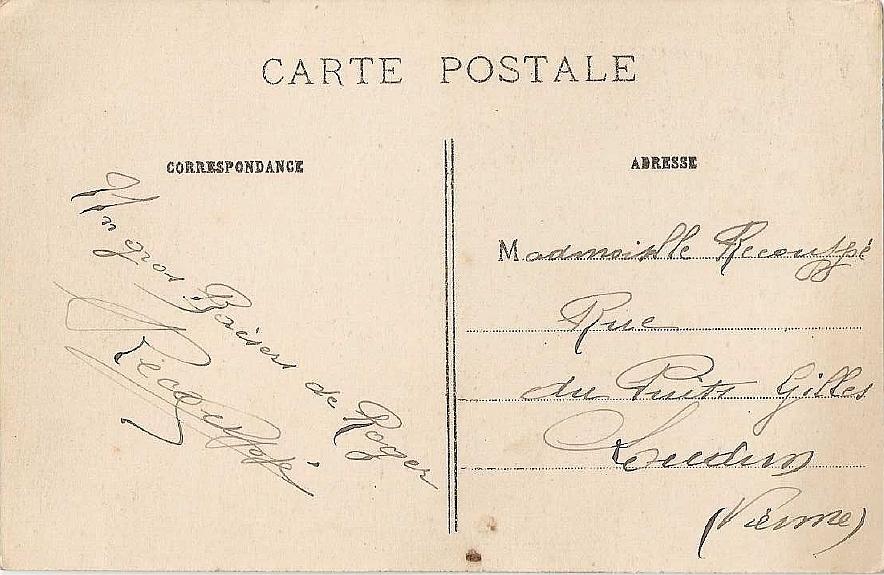 CARTE POSTALE
CORRESPONDANCE
Un gros Baisers de Roger
Récouppé
ADRESSE
Madmoiselle Recouppé
Rue
du Puits Gilles
Loudun
(Vienne)